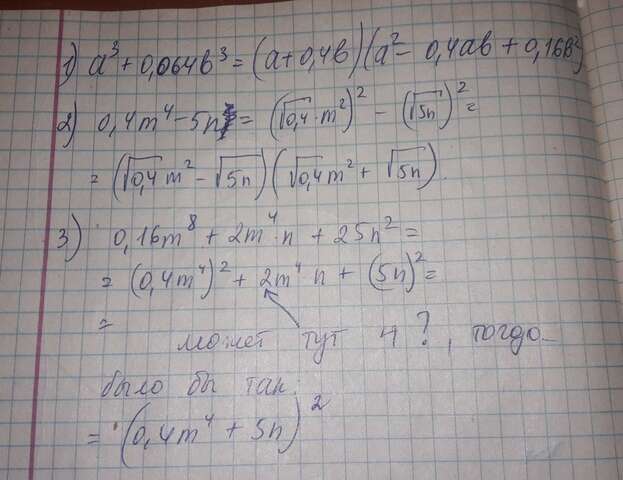 1) a³ + 0,064b³ = (a + 0,4b)(a² - 0,4ab + 0,16b²)
2) 0,4m⁴ - 5n = (√0,4 · m²)² - (√5n)² =
= (√0,4 m² - √5n)(√0,4 m² + √5n).
3) 0,16m⁸ + 2m⁴·n + 25n² =
= (0,4m⁴)² + 2m⁴·n + (5n)² =
=
может тут 4?, тогда
было бы так:
= (0,4m⁴ + 5n)²